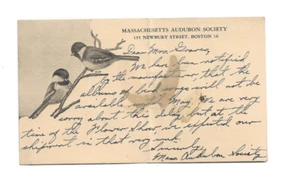 MASSACHUSETTS AUDUBON SOCIETY
155 NEWBURY STREET, BOSTON 16
Dear Mrs. Graves,
We have been notified
by the manufacturer that the
albums of bird songs will not be
available May. We are very
sorry about this delay, but at the
time of the Flower Show we expected our
shipment in that very week.
Sincerely,
Mass Audubon Society